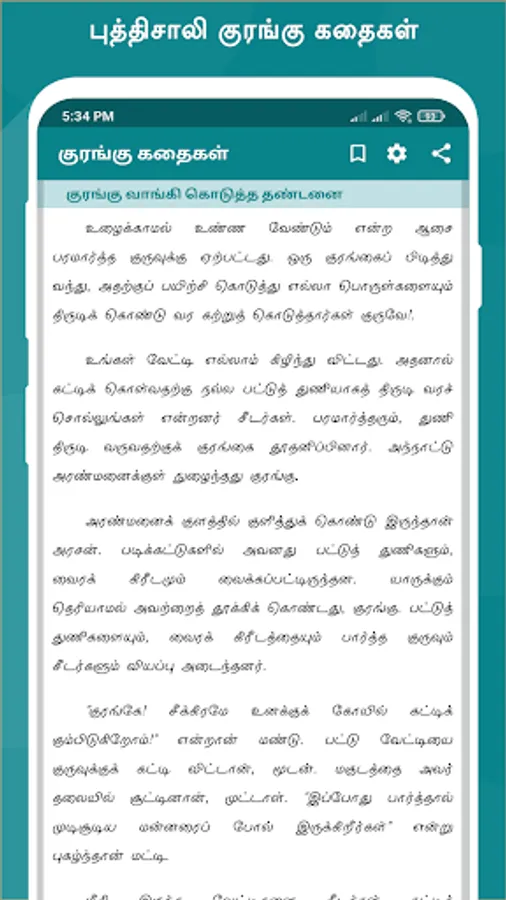 புத்திசாலி குரங்கு கதைகள்
5:34 PM
93
குரங்கு கதைகள்
குரங்கு வாங்கி கொடுத்த தண்டனை
உழைக்காமல் உண்ண வேண்டும் என்ற ஆசை
பரமார்த்த குருவுக்கு ஏற்பட்டது. ஒரு குரங்கைப் பிடித்து
வந்து, அதற்குப் பயிற்சி கொடுத்து எல்லா பொருள்களையும்
திருடிக் கொண்டு வர கற்றுத் கொடுத்தார்கள் குருவே!.
உங்கள் வேட்டி எல்லாம் கிழிந்து விட்டது. அதனால்
கட்டிக் கொள்வதற்கு நல்ல பட்டுத் துணியாகத் திருடி வரச்
சொல்லுங்கள் என்றனர் சீடர்கள். பரமார்த்தரும், துணி
திருடி வருவதற்குக் குரங்கை தூதனிப்பினார். அந்நாட்டு
அரண்மனைக்குள் துழைந்தது குரங்கு.
அரண்மனைக் குளத்தில் குளித்துக் கொண்டு இருந்தான்
அரசன். படிக்கட்டுகளில் அவனது பட்டுத் துணிகளும்,
வைரக் கிரீடமும் வைக்கப்பட்டிருந்தன. யாருக்கும்
தெரியாமல் அவற்றைத் தூக்கிக் கொண்டது, குரங்கு. பட்டுத்
துணிகளையும், வைரக் கிரீடத்தையும் பார்த்த குருவும்
சீடர்களும் வியப்பு அடைந்தனர்.
"குரங்கே! சீக்கிரமே உனக்குக் கோயில் கட்டிக்
கும்பிடுகிறோம்!" என்றான் மண்டு. பட்டு வேட்டியை
குருவுக்குக் கட்டி விட்டான், மூடன். மகுடத்தை அவர்
தலையில் சூட்டினான், முட்டாள். "இப்போது பார்த்தால்
முடிசூடிய மன்னரைப் போல் இருக்கிறீர்கள்" என்று
புகழ்ந்தான் மட்டி.